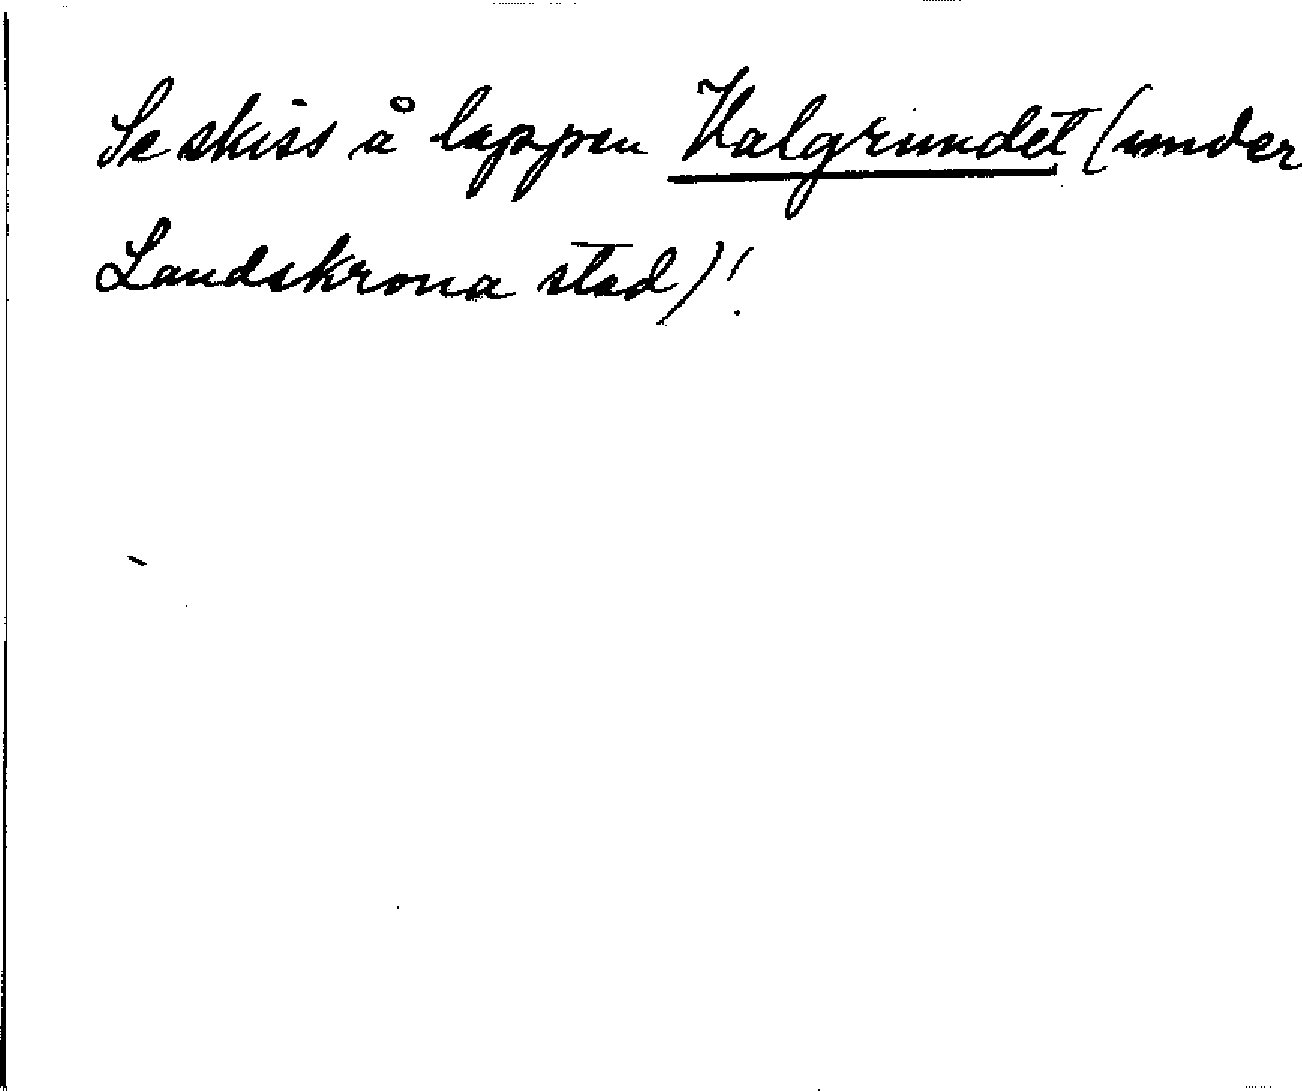 Se skiss å lappen Valgrundet (under
Landskrona stad)!